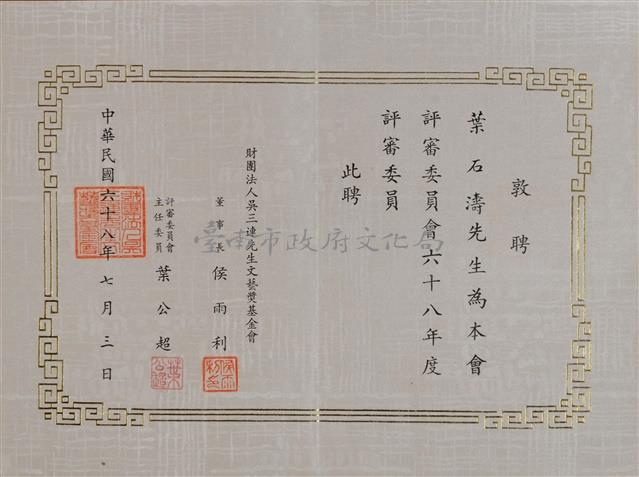 敦聘
葉石濤先生為本會
評審委員會六十八年度
評審委員
此聘
財團法人吳三連先生文藝獎基金會
董事長 侯雨利
評審委員會
主任委員 葉公超
中華民國六十八年七月三日
臺南市政府文化局